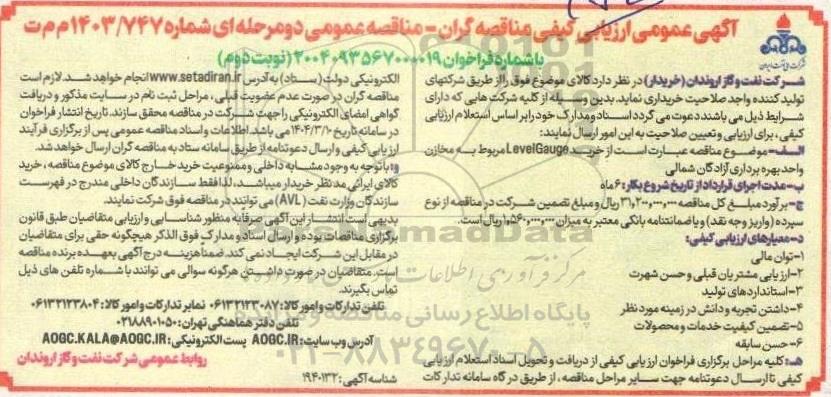 آگهی عمومی ارزیابی کیفی مناقصه گران - مناقصه عمومی دو مرحله ای شماره ۱۴۰۳/۷۴۷ م م ت
با شماره فراخوان ۲۰۰۴۰۹۳۵۶۷۰۰۰۰۱۹ (نوبت دوم)
شرکت نفت و گاز اروندان (خریدار) در نظر دارد کالای موضوع فوق را از طریق شرکتهای
تولید کننده واجد صلاحیت خریداری نماید. بدین وسیله از کلیه شرکت هایی که دارای
شرایط ذیل می باشند دعوت می گردد اسناد و مدارک خود را بر اساس استعلام ارزیابی
کیفی، برای ارزیابی و تعیین صلاحیت به این امور ارسال نمایند:
الف- موضوع مناقصه عبارت است از خرید LevelGauge مربوط به مخازن
واحد بهره برداری آزادگان شمالی
ب- مدت اجرای قرارداد از تاریخ شروع بکار: ۶ ماه
ج- برآورد مبلغ کل مناقصه ۳۱,۲۰۰,۰۰۰,۰۰۰ ریال و مبلغ تضمین شرکت در مناقصه از نوع
سپرده (واریز وجه نقد) و یا ضمانتنامه بانکی معتبر به میزان ۱,۵۶۰,۰۰۰,۰۰۰ ریال است.
د- معیارهای ارزیابی کیفی:
۱- توان مالی
۲- ارزیابی مشتریان قبلی و حسن شهرت
۳- استانداردهای تولید
۴- داشتن تجربه و دانش در زمینه مورد نظر
۵- تضمین کیفیت خدمات و محصولات
۶- حسن سابقه
هـ- کلیه مراحل برگزاری فراخوان ارزیابی کیفی از دریافت و تحویل اسناد استعلام ارزیابی
کیفی تا ارسال دعوتنامه جهت سایر مراحل مناقصه، از طریق درگاه سامانه تدارکات
الکترونیکی دولت (ستاد) به آدرس www.setadiran.ir انجام خواهد شد. لازم است
مناقصه گران در صورت عدم عضویت قبلی، مراحل ثبت نام در سایت مذکور و دریافت
گواهی امضای الکترونیکی را جهت شرکت در مناقصه محقق سازند. تاریخ انتشار فراخوان
در سامانه تاریخ ۱۴۰۴/۳/۱۰ می باشد. اطلاعات و اسناد مناقصه عمومی پس از برگزاری فرآیند
ارزیابی کیفی و ارسال دعوتنامه از طریق سامانه ستاد به مناقصه گران ارسال خواهد شد.
و- با توجه به وجود مشابه داخلی و ممنوعیت خرید خارج کالای موضوع مناقصه، خرید
کالای ایرانی مد نظر خریدار میباشد، لذا فقط سازندگان داخلی مندرج در فهرست
سازندگان وزارت نفت (AVL) می توانند در مناقصه فوق شرکت نمایند.
بدیهی است انتشار این آگهی صرفا به منظور شناسایی و ارزیابی متقاضیان طبق قانون
برگزاری مناقصات بوده و ارسال اسناد و مدارک فوق الذکر هیچگونه حقی برای متقاضیان
در مقابل این شرکت ایجاد نمی کند. ضمنا هزینه درج آگهی بعهده برنده مناقصه
است. متقاضیان در صورت داشتن هرگونه سوالی می توانند با شماره تلفن های ذیل
تماس بگیرند.
تلفن تدارکات و امور کالا: ۰۶۱۳۲۱۲۳۰۸۷ نمابر تدارکات و امور کالا: ۰۶۱۳۲۱۲۳۸۰۴
تلفن دفتر هماهنگی تهران: ۰۲۱۸۸۹۰۱۰۵۰
آدرس وب سایت: AOGC.IR پست الکترونیکی: AOGC.KALA@AOGC.IR
روابط عمومی شرکت نفت و گاز اروندان
شناسه آگهی: ۱۹۴۰۱۳۲
ParsNamadData
مرکز فرآوری اطلاعات پارس نماد داده
پایگاه اطلاع رسانی مناقصه و مزایده
۰۲۱-۸۸۳۴۹۶۷۰-۵